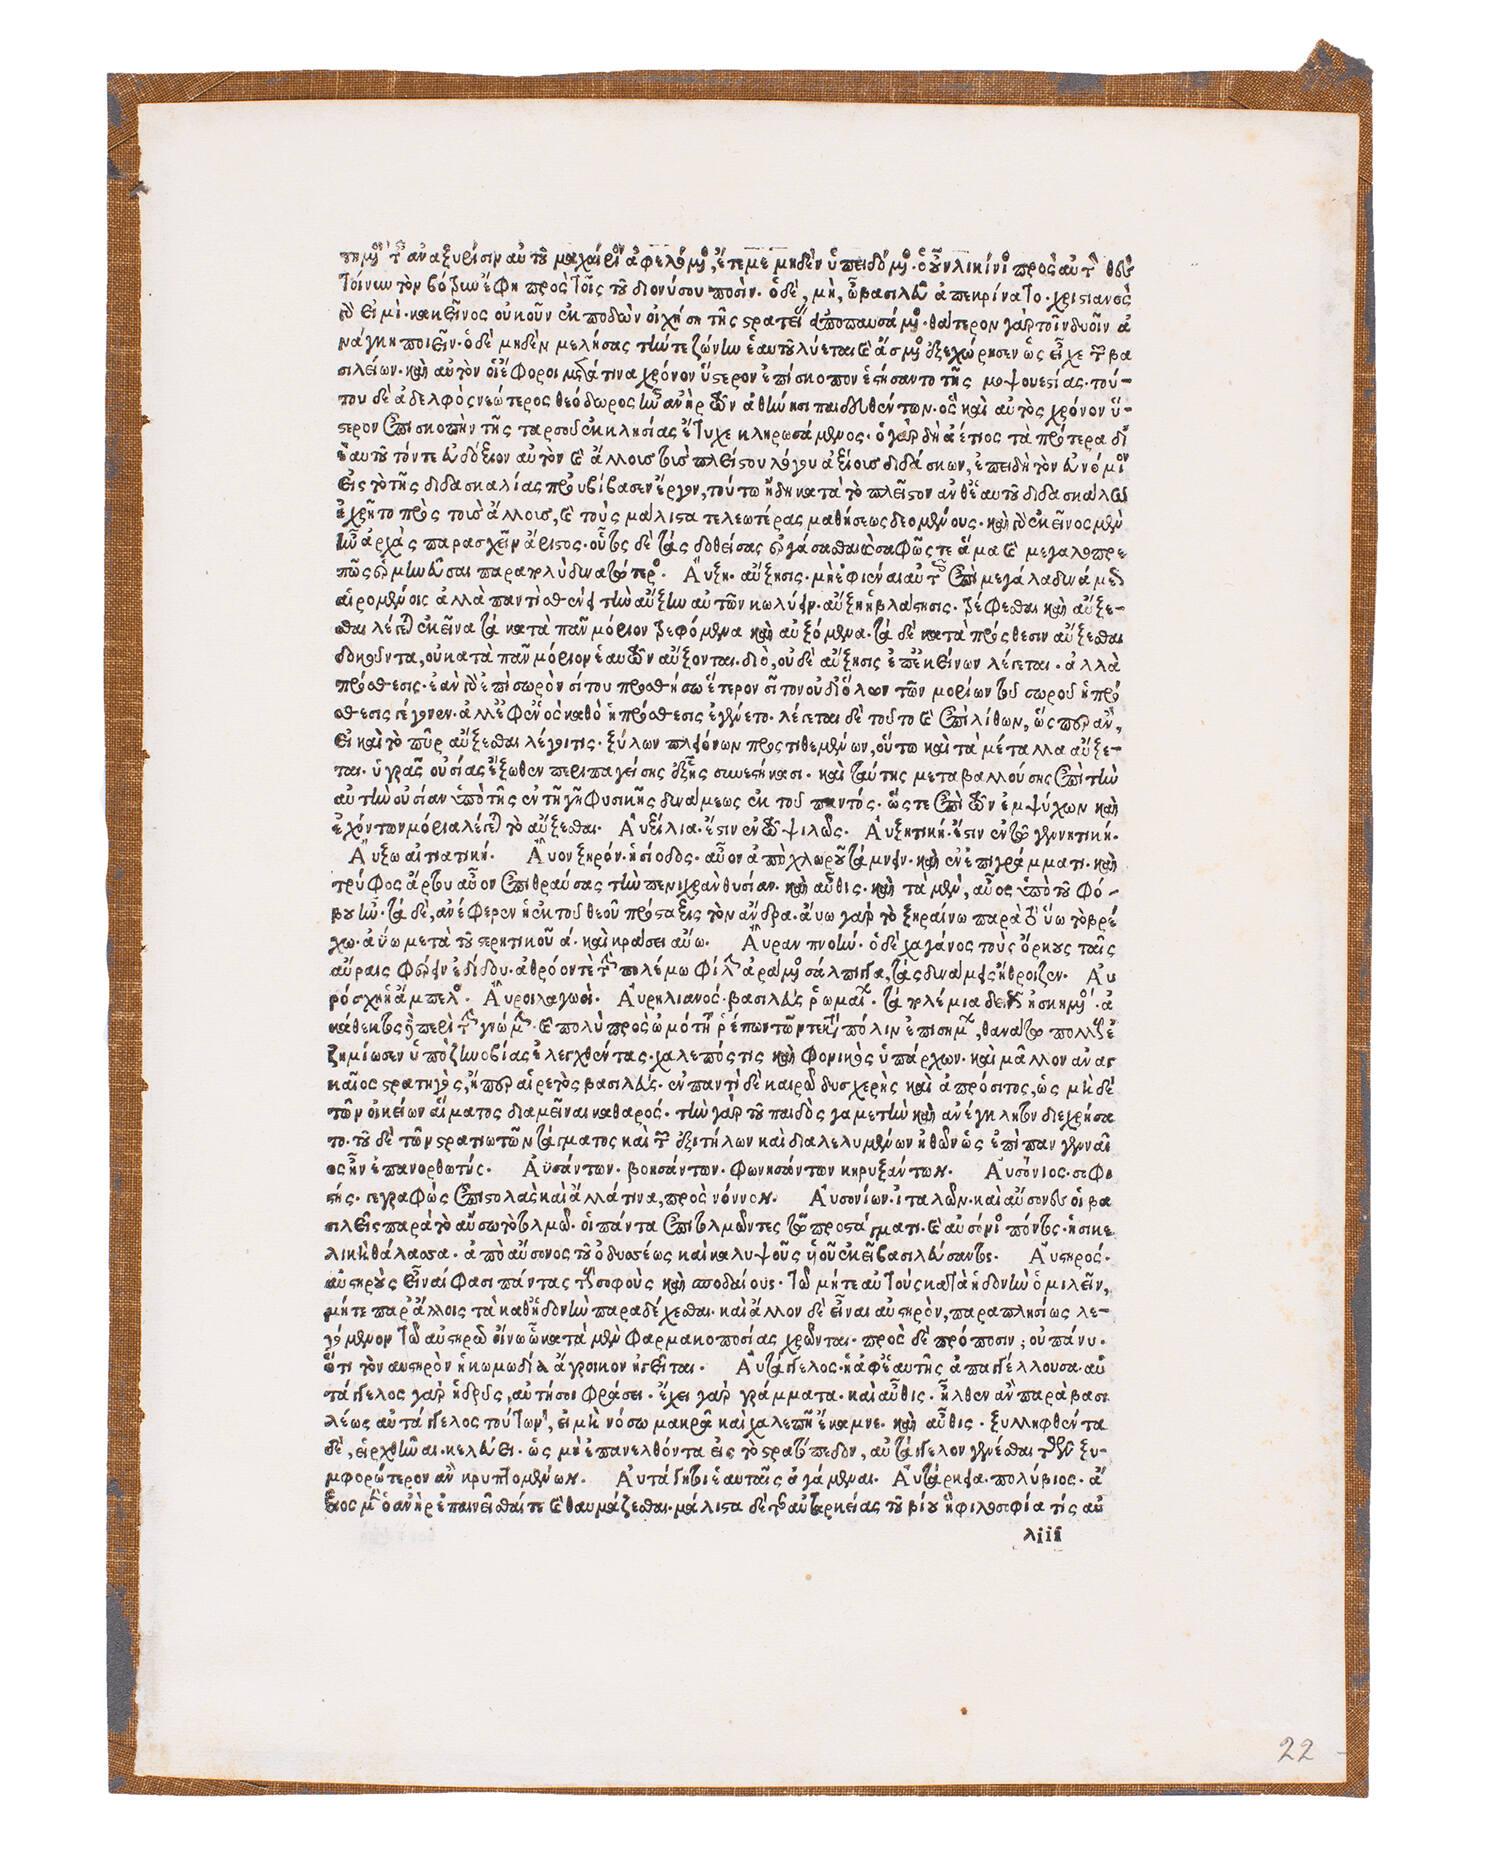 τημένος τῶν ἀναξυρίσιν αὐτοῦ μαχαίριον ἀφελόμενος, ἔτεμε μηδὲν ὑπειδόμενος. ὁ οὖν λικίνιος πρὸς αὐτὸν θὲς
τοίνυν τὸν βότρυν ἔφη πρὸς τοῖς τοῦ διονύσου ποσίν. ὁ δέ, μὴ, ὦ βασιλεῦ ἀπεκρίνατο. χριστιανὸς
γὰρ εἰμί. κἀκεῖνος οὐκοῦν ἐκποδὼν οἰχήσῃ τῆς στρατείας ἀποπαυσάμενος. θάτερον γὰρ τοῖν δυοῖν ἀ
νάγκη ποιεῖν. ὁ δὲ μηδὲν μελήσας τήν τε ζώνην ἑαυτοῦ λύεται καὶ ἄσμενος ἐξεχώρησεν ὡς εἶχε τῶν βα
σιλείων. καὶ αὐτὸν οἱ ἔφοροι μετά τινα χρόνον ὕστερον ἐπίσκοπον ἐστήσαντο τῆς μοψουεστίας. τού-
του δὲ ἀδελφὸς νεώτερος θεόδωρος ἦν ἀνὴρ τῶν ἀθήνησι παιδευθέντων. ὃς καὶ αὐτὸς χρόνον ὕ-
στερον ἐπισκοπὴν τῆς ταρσοῦ ἐκκλησίας ἔτυχε κληρωσάμενος. ὁ γὰρ δὴ ἀέτιος τὰ πρότερα δι'
ἑαυτοῦ τόν τε εὐδόξιον αὐτὸν καὶ ἄλλοις τισὶ πλείστου λόγου ἀξίοις διδάσκων, ἐπειδὴ τὸν εὐνόμιον
εἰς τὸ τῆς διδασκαλίας προυβίβασεν ἔργον, τούτῳ ἤδη κατὰ τὸ πλεῖστον ἀνθ' ἑαυτοῦ διδασκάλῳ
ἐχρῆτο πρός τοις ἄλλοις, καὶ τοὺς μάλιστα τελεωτέρας μαθήσεως δεομένους. καὶ γὰρ ἐκεῖνος μὲν
ἦν ἀρχὰς παρασχεῖν ἄριστος. οὗτος δὲ τὰς δοθείσας ἐργάσασθαι καὶ σαφῶς τε ἅμα καὶ μεγαλοπρε
πῶς ἑρμηνεῦσαι παραπολὺ δυνατώτερος. Αὔξη. αὔξησις. μὴ ἐφιέναι αὐτοῖς ἐπὶ μεγάλα δυνάμει
αἰρομένοις ἀλλὰ παντὶ σθένει τὴν αὔξην αὐτῶν κωλύειν. αὔξη ἡ βλάστησις. τρέφεσθαι καὶ αὔξε-
σθαι λέγεται ἐκεῖνα τὰ κατὰ πᾶν μόριον τρεφόμενα καὶ αὐξόμενα. τὰ δὲ κατὰ πρόσθεσιν αὔξεσθαι
δοκοῦντα, οὐ κατὰ πᾶν μόριον ἑαυτῶν αὔξονται. διὸ, οὐδὲ αὔξησις ἐπ' ἐκείνων λέγεται. ἀλλὰ
πρόσθεσις. ἐὰν γὰρ ἐπὶ σωρὸν σίτου προσθήσω ἕτερον σῖτον οὐ δι' ὅλων τῶν μορίων τοῦ σωροῦ ἡ πρό
σθεσις γέγονεν. ἀλλ' ἐφ' ἑνὸς καθὸ ἡ πρόσθεσις ἐγένετο. λέγεται δὲ τοῦτο καὶ ἐπὶ λίθων, ὥσπερ ἂν,
εἰ καὶ τὸ πῦρ αὔξεσθαι λέγοι τις. ξύλων πλειόνων προστιθεμένων, οὕτω καὶ τὰ μέταλλα αὔξε-
ται. ὑγρᾶς οὐσίας ἔξωθεν περιπαγείσης ἐξ ἧς συνεστήκασι. καὶ ταύτης μεταβαλλούσης ἐπὶ τὴν
αὐτὴν οὐσίαν ὑπὸ τῆς ἐν τῇ γῇ φυσικῆς δυνάμεως ἐκ τοῦ παντός. ὥστε ἐπὶ τῶν ἐμψύχων καὶ
ἐχόντων μόρια λέγεται τὸ αὔξεσθαι. Αὐξίλια. ἔστιν ἐν τῷ ψιλῶς. Αὐξητική. ἔστιν ἐν τῷ γεννητική.
Αὔξω αἰτιατικῇ. Αὖον ξηρόν. ἡσίοδος. αὖον ἀπὸ χλωροῦ τάμνειν. καὶ ἐν ἐπιγράμματι. καὶ
τρύφος ἄρτου αὖον ἐπιθραύσας τὴν πενιχρὰν θυσίαν. καὶ αὖθις. καὶ τὰ μὲν, αὖος ὑπὸ τοῦ φό-
βου ἦν. τὰ δὲ, ἀνέφερεν ἡ ἐκ τοῦ θεοῦ πρόσταξις τὸν ἄνδρα. αὔω γὰρ τὸ ξηραίνω παρὰ τὸ ὕω τὸ βρέ
χω. ἀύω μετὰ τοῦ στερητικοῦ ἀ. καὶ κράσει αὔω. Αὔραν πνοήν. ὁ δὲ χαγάνος τοὺς ὅρκους ταῖς
αὔραις φέρειν ἐδίδου. ἀθρόον τε τὸν πόλεμον φίλιππος ἀράμενος σάλπιγγα, τὰς δυνάμεις ἤθροιζεν. Αὐ
ρόσχη ἡ ἄμπελος. Αὖροι λαγωοί. Αὐρηλιανός. βασιλεὺς ῥωμαίων. τὰ πολέμια δεινῶς ἠσκημένος. ἀ
κάθεκτος ἦν περὶ τὴν γνώμην. καὶ πολὺ πρὸς ὠμότητα ῥέπων τῶν τε κατὰ πόλιν ἐπισήμων, θανάτῳ πολλοὺς ἐ
ζημίωσεν ὑπὸ ζηνοβίας ἐλεγχθέντας. χαλεπός τις καὶ φονικὸς ὑπάρχων. καὶ μᾶλλον ἀναγ
καῖος στρατηγὸς, ἤπερ αἱρετὸς βασιλεύς. ἐν παντὶ δὲ καιρῷ δυσχερὴς καὶ ἀπρόσιτος, ὡς μηδὲ
τῶν οἰκείων αἵματος διαμεῖναι καθαρός. τὴν γὰρ τοῦ παιδὸς γαμετὴν καὶ ἀνέγκλητον διεχρήσα
το. τοῦ δὲ τῶν στρατιωτῶν τάγματος καὶ τῶν ἐξιτήλων καὶ διαλελυμένων ἠθῶν ὡς ἐπίπαν γενναῖ
ος ἦν ἐπανορθωτής. Αϋσάντων. βοησάντων. φωνησάντων κηρυξάντων. Αὐσόνιος. σοφι
στής. γεγραφὼς ἐπιστολὰς καὶ ἄλλά τινα, πρὸς νόννον. Αὐσονίων. ἰταλῶν. καὶ αὔσονες οἱ βα
σιλεῖς παρὰ τὸ αὔσω τὸ τολμῶ. οἱ πάντα ἐπιτολμῶντες τῷ προστάγματι. καὶ αὐσόνιος πόντος. ἡ σικε
λικὴ θάλασσα. ἀπὸ αὔσονος τοῦ ὀδυσσέως καὶ καλυψοῦς ἢ οὗ ἐκεῖ βασιλεύσαντος. Αὐστηρός.
αὐστηροὺς εἶναί φασι πάντας τοὺς σοφοὺς καὶ σποδαίους. τῷ μήτε αὐτοὺς κατὰ ἡδονὴν ὁμιλεῖν,
μήτε παρ' ἄλλοις τὰ καθ' ἡδονὴν παραδέχεσθαι. καὶ ἄλλον δὲ εἶναι αὐστηρὸν, παραπλησίως λε-
γόμενον τῷ αὐστηρῷ οἴνῳ ᾧ κατὰ μὲν φαρμακοποσίας χρῶνται. πρὸς δὲ πρόποσιν, οὐ πάνυ.
ὅτι τὸν αυστηρὸν ἡ κωμῳδία ἄγροικον ἡγεῖται. Αὐτάγγελος. ἡ ἀφ' ἑαυτῆς ἀπαγγέλλουσα. αὐ
τάγγελος γὰρ ἡ δρῦς, αὐτή σοι φράσει. ἔχει γὰρ γράμματα. καὶ αὖθις. ἦλθεν ἂν παρὰ βασι
λέως αὐτάγγελος τούτων, εἰ μὴ νόσῳ μακρᾷ καὶ χαλεπῇ ἔκαμνε. καὶ αὖθις. ξυλληφθέντα
δὲ, εἰρχθῆναι κελεύει. ὡς μὴ ἐπανελθόντα εἰς τὸ στρατόπεδον, αὐτάγγελον γενέσθαι τῶν ξυ-
μφορώτερον ἂν κρυπτομένων. Αὐτάγητοι ἑαυταῖς ἀγάμεναι. Αὐτάρκεια. πολύβιος. ἄ
ξιος μὲν ὁ ἀνὴρ ἐπαινεῖσθαί τε καὶ θαυμάζεσθαι. μάλιστα δὲ τῆς αὐταρκείας τοῦ βίου ἡ φιλοσοφία τίς αὐ
λiiii
22